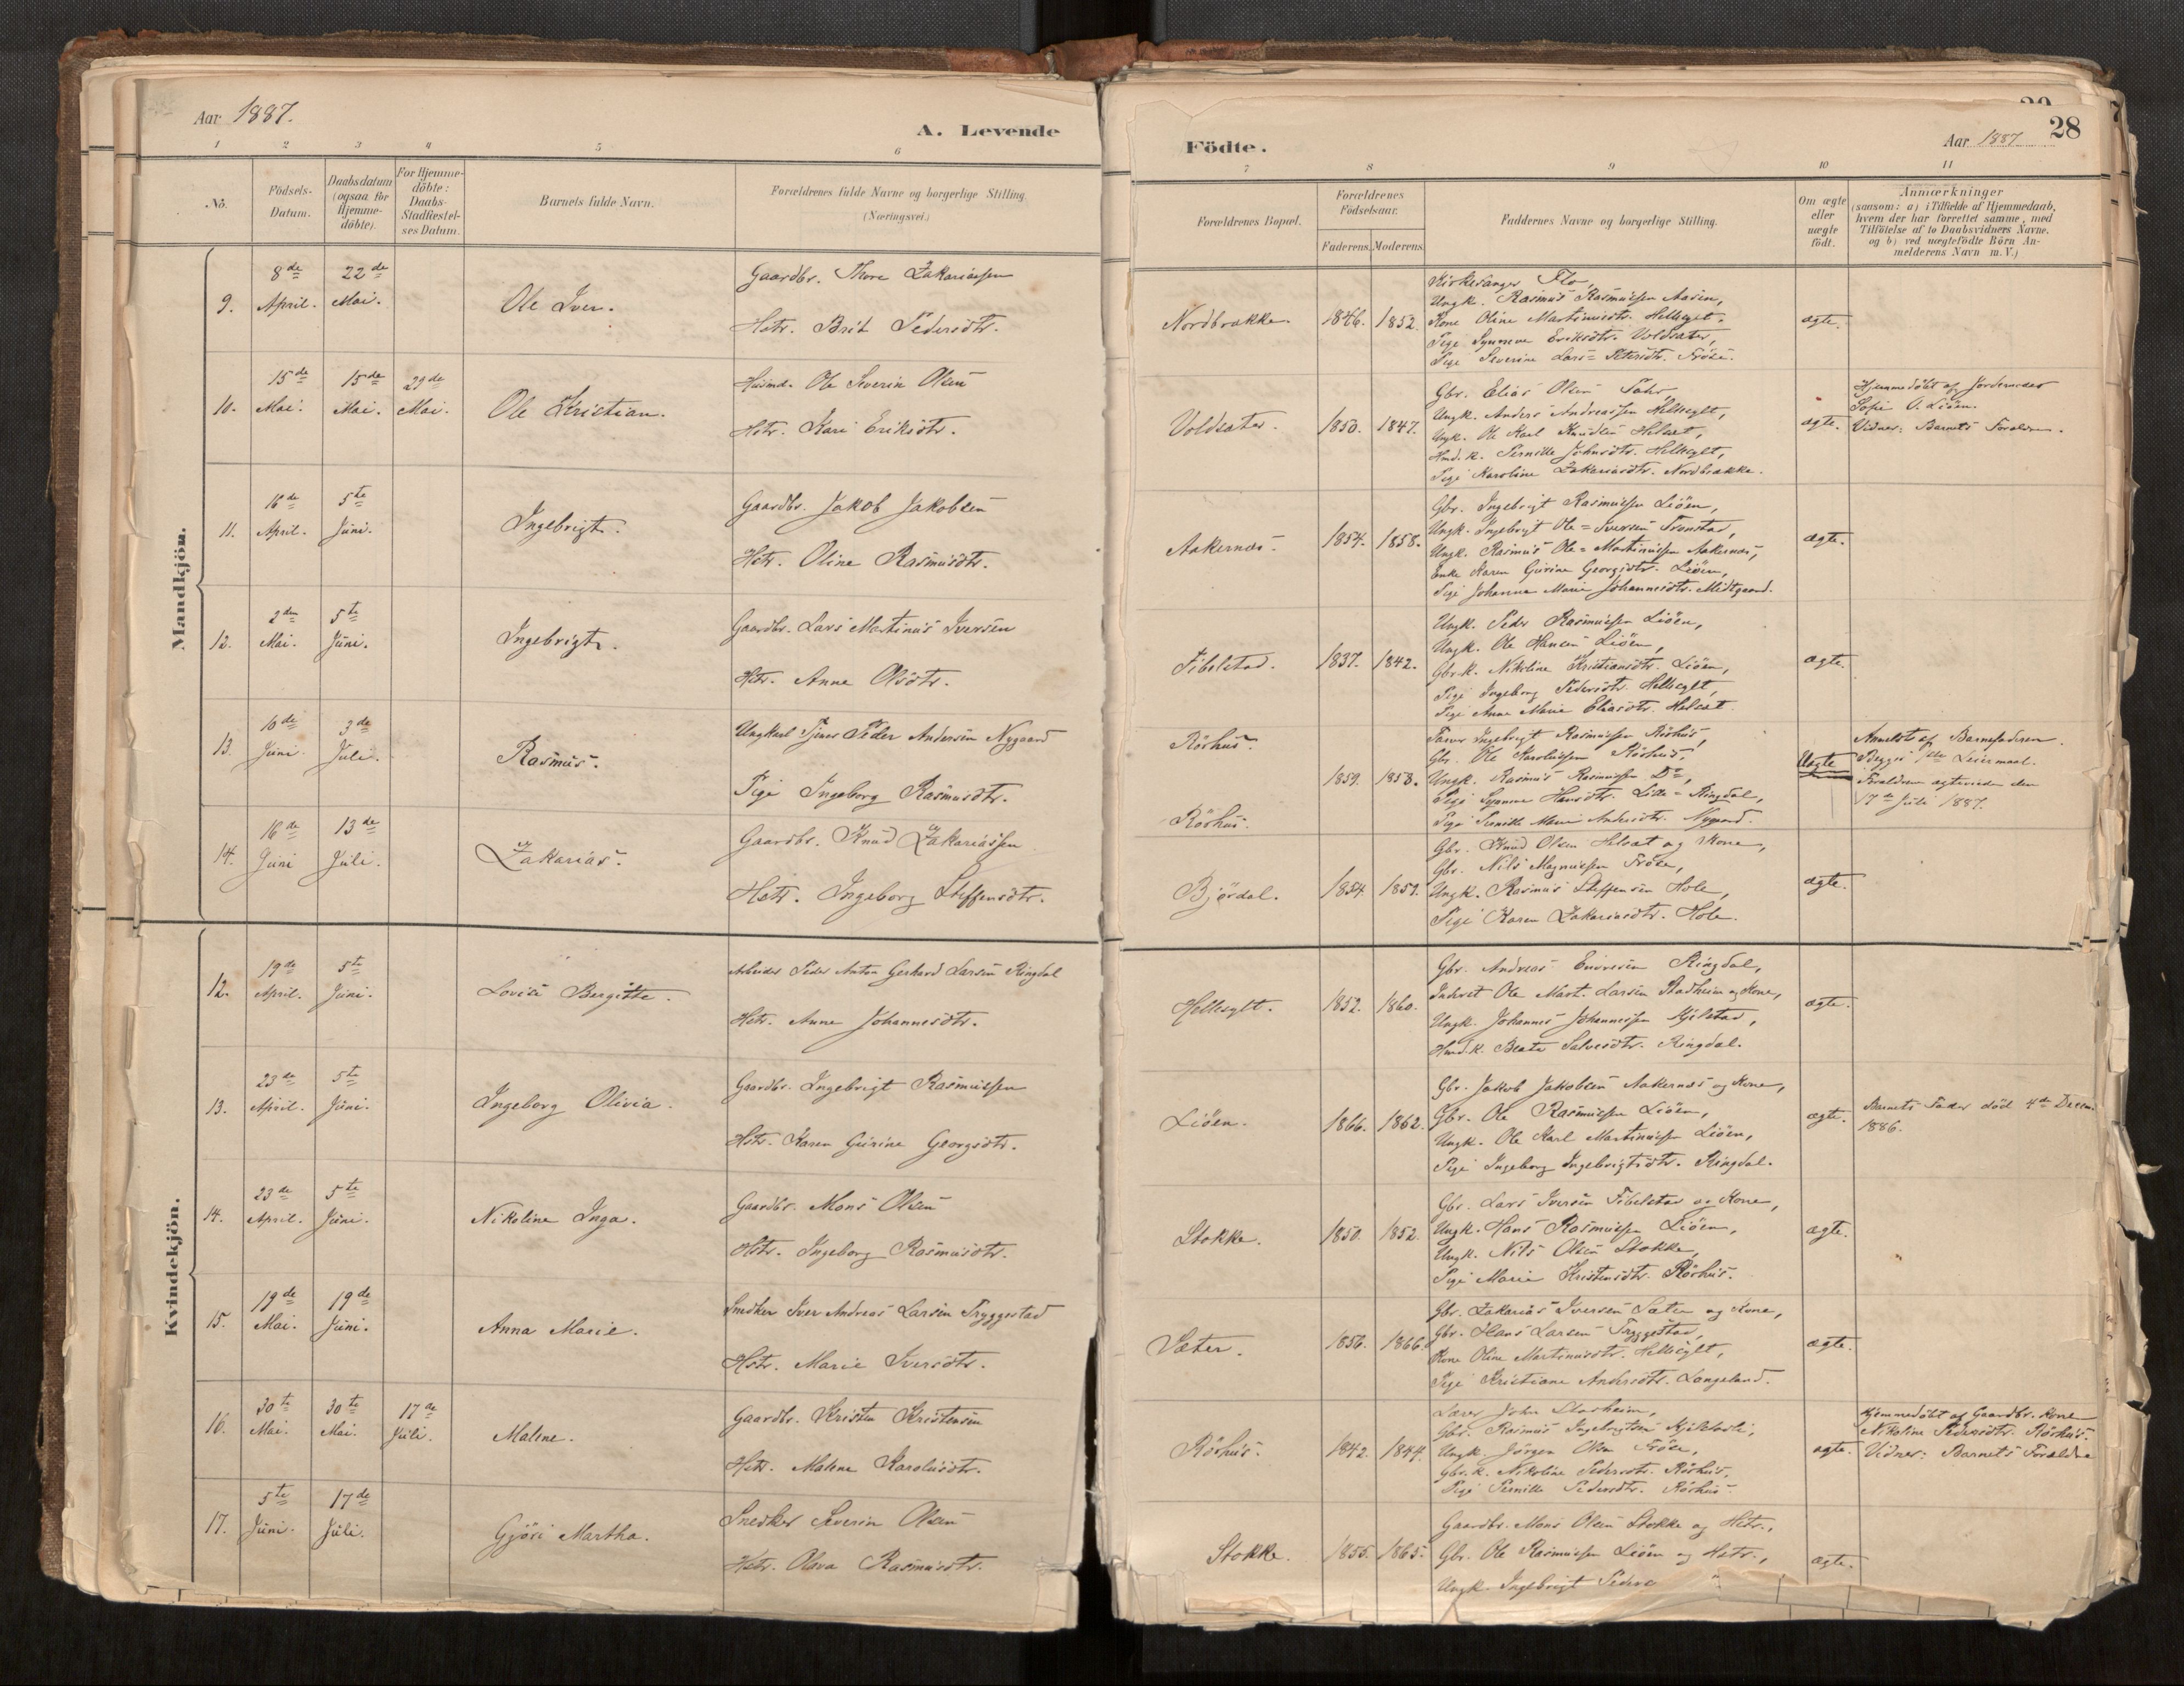 Aar 1887.
A. Levende
1 2 3 4 5 6
No. Födsels-Datum. Daabsdatum (ogsaa for Hjemme-döbte). For Hjemme-döbte: Daabs-Stadfæstel-ses Datum. Barnets fulde Navn. Forældrenes fulde Navne og borgerlige Stilling (Næringsvei.)
Mandkjön.
9. 8de April. 22de Mai. Ole Iver. Gaardbr. Thore Zakariassen
Hstr. Brit Pedersdtr.
10. 15de Mai. 15de Mai. 29de Mai. Ole Kristian. Husmd. Ole Severin Olsen
Hstr. Kari Eriksdtr.
11. 16de April. 5te Juni. Ingebrigt. Gaardbr. Jakob Jakobsen
Hstr. Oline Rasmusdtr.
12. 2den Mai. 5te Juni. Ingebrigt. Gaardbr. Lars Martinus Iversen
Hstr. Anne Olsdtr.
13. 10de Juni. 3de Juli. Rasmus. Ungkarl Tjener Peder Andersen Nygaard
Pige Ingeborg Rasmusdtr.
14. 16de Juni 13de Juli. Zakarias. Gaardbr. Knud Zakariassen
Hstr. Ingeborg Steffensdtr.
Kvindekjön.
12. 19de April. 5te Juni. Lovise Bergitte. Arbeider Peder Anton Gerhard Larsen Ringdal
Hstr. Anne Johannesdtr.
13. 23de April. 5te Juni. Ingeborg Olivia. Gaardbr. Ingebrigt Rasmussen
Hstr. Karen Gurine Georgsdtr.
14. 23de April. 5te Juni. Nikoline Inga. Gaardbr. Mons Olsen
Hstr. Ingeborg Rasmusdtr.
15. 19de Mai. 19de Juni. Anna Marie. Snedker Iver Andreas Larsen Tryggestad
Hstr. Marie Iversdtr.
16. 30te Mai. 30te Mai. 17de Juli. Malene. Gaardbr. Kristen Kristensen
Hstr. Malene Karolusdtr.
17. 5te Juni. 17de Juli. Gjöri Martha. Snedker Severin Olsen
Hstr. Olava Rasmusdtr.
Födte.
Aar 1887
28
7 8 9 10 11
Forældrenes Bopæl. Forældrenes Födselsaar. Faderens. Moderens. Faddernes Navne og borgerlige Stilling. Om ægte eller uægte födt. Anmærkninger
(saasom: a) i Tilfælde af Hjemmedaab, hvem der har forrettet samme, med Tilföielse af to Daabsvidners Navne. og b) ved uægtefödte Börn An-melderens Navn m.V.)
Nordbrække. 1846. 1852. Kirkesanger Flo,
Ungk. Rasmus Rasmussen Aasen,
Kone Oline Martinusdtr. Hellesylt,
Pige Synneve Eriksdtr. Voldsæter,
Pige Severine Lars-Petersdtr. Fröse.
ægte.
Voldsæter. 1850. 1847. Gbr. Elias Olsen
Ungk. Anders Andreassen Hellesylt,
Ungk. Ole Karl Knudsen Helset,
Hmd.k. Pernille Johnsdtr. Hellesylt,
Pige Karoline Zakariasdtr. Nordbrække.
ægte. Hjemmedöbt af Jordemoder
Sofie O. Liöen.
Vidner: Barnets Forældre.
Aakernes. 1854. 1858. Gbr. Ingebrigt Rasmussen Liöen,
Ungk. Ingebrigt Ole-Iversen Tronstad,
Ungk. Rasmus Ole-Martinussen Aakernes,
Enke Karen Gurine Georgsdtr. Liöen,
Pige Johanna Marie Johannesdtr. Midtgaard.
ægte.
Fibelstad. 1837. 1842. Ungk. Peder Rasmussen Liöen,
Ungk. Ole Hansen Liöen,
Gbr.k. Nikoline Kristiansdtr. Liöen,
Pige Ingeborg Pedersdtr. Hellesylt,
Pige Anne Marie Eliasdtr. Helset.
ægte.
Röshus. 1859. 1858. Ingebrigt Rasmussen Röshus,
Gbr. Ole Karolussen Röshus,
Ungk. Rasmus Rasmussen Do,
Pige Synneve Hansdtr. Lille-Ringdal,
Röshus. Pige Pernille Marie Andersdtr. Nygaard.
Uægte Anmeldt af Barnefaderen.
Begges 1ste Leiermaal.
Forældrene ægteviede den
17de Juli 1887.
Bjørdal. 1854. 1859. Gbr. Knud Olsen Helset og Kone,
Gbr. Nils Magnussen Fröse,
Ungk. Rasmus Steffensen Hole,
Pige Karen Zakariasdtr. Hole.
ægte.
Hellesylt. 1852. 1860. Gbr. Andreas Ringdal,
Inderst Ole Mart. Larsen Stadheim og Kone,
Ungk. Johannes Johannessen Kjelstad,
Hmd.k. Beate Salvesdtr. Ringdal.
ægte.
Liöen. 1866. 1862. Gbr. Jakob Jakobsen Aakernes og Kone,
Gbr. Ole Rasmussen Liöen,
Ungk. Ole Karl Martinussen Liöen,
Pige Ingeborg Ingebrigtsdtr. Ringdal.
ægte. Barnets Fader död 4de Decem.
1886.
Stokke. 1850. 1852. Gbr. Lars Iversen Fibelstad og Kone,
Ungk. Hans Rasmussen Liöen,
Ungk. Nils Olsen Stokke,
Pige Marie Kristensdtr. Röshus.
ægte.
Sæter. 1856. 1866. Gbr. Zakarias Iversen Sæter og Kone,
Gbr. Hans Larsen Tryggestad,
Kone Oline Martinusdtr. Hellesylt,
Pige Kristiane Andersdtr. Langeland.
ægte.
Röshus. 1842. 1844. Lærer John Starheim,
Gbr. Rasmus Ingebrigtsen
Ungk. Jörgen Olsen Fröse,
Gbr.k. Nikoline Pedersdtr. Röshus,
Pige Pernille Pedersdtr. Röshus.
ægte. Hjemmedöbt af Gaardbr. Kone
Nikoline Pedersdtr. Röshus.
Vidner: Barnets Forældre
Stokke. 1855. 1865. Gaardbr. Mons Olsen Stokke og Hstr.,
Gbr. Ole Rasmussen Liöen og Hstr.,
Ungk. Ingebrigt
ægte.